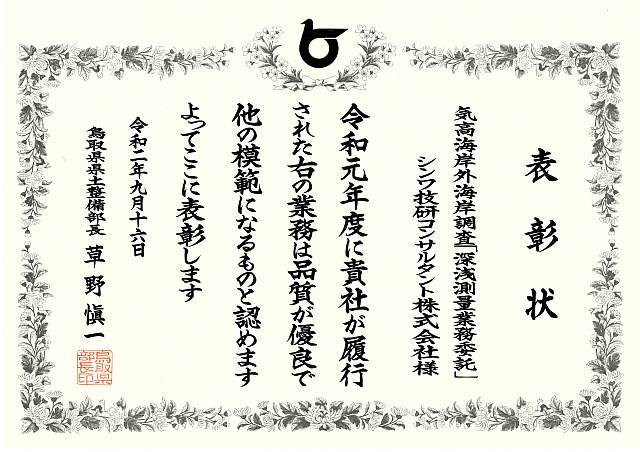 表彰状
気高海岸外海岸調査「深浅測量業務委託」
シンワ技研コンサルタント株式会社様
令和元年度に貴社が履行
された右の業務は品質が優良で
他の模範になるものと認めます
よってここに表彰します
令和二年九月十六日
鳥取県県土整備部長 草野愼一
鳥取県
部長印